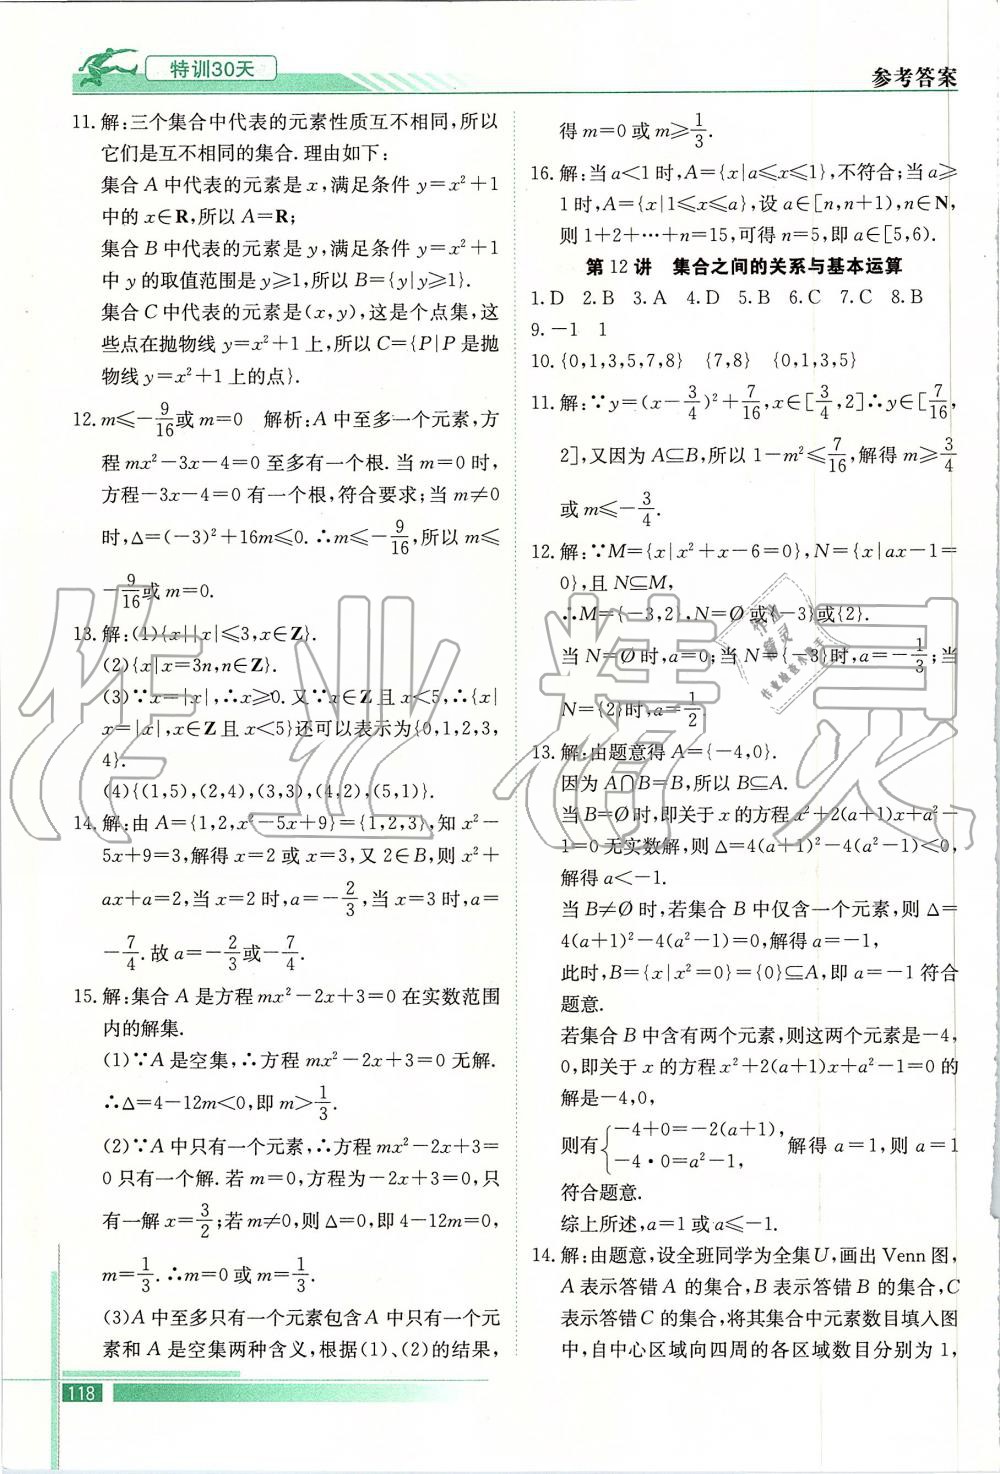 特训30天
参考答案
11. 解:三个集合中代表的元素性质互不相同,所以
它们是互不相同的集合.理由如下:
集合 A 中代表的元素是 x,满足条件 y=x²+1
中的 x∈R,所以 A=R;
集合 B 中代表的元素是 y,满足条件 y=x²+1
中 y 的取值范围是 y≥1,所以 B={y|y≥1}.
集合 C 中代表的元素是(x,y),这是个点集,这
些点在抛物线 y=x²+1 上,所以 C={P|P 是抛
物线 y=x²+1 上的点}.
12. m≤-9/16或 m=0 解析:A 中至多一个元素,方
程 mx²-3x-4=0 至多有一个根.当 m=0 时,
方程-3x-4=0 有一个根,符合要求;当 m≠0
时,Δ=(-3)²+16m≤0.∴m≤-9/16,所以 m≤
-9/16或 m=0.
13. 解:(1){x||x|≤3,x∈Z}.
(2){x|x=3n,n∈Z}.
(3)∵x=|x|,∴x≥0.又∵x∈Z 且 x<5,∴{x|
x=|x|,x∈Z 且 x<5}还可以表示为{0,1,2,3,
4}.
(4){(1,5),(2,4),(3,3),(4,2),(5,1)}.
14. 解:由 A={1,2,x²-5x+9}={1,2,3},知 x²-
5x+9=3,解得 x=2 或 x=3,又 2∈B,则 x²+
ax+a=2,当 x=2 时,a=-2/3,当 x=3 时,a=
-7/4.故 a=-2/3或-7/4.
15. 解:集合 A 是方程 mx²-2x+3=0 在实数范围
内的解集.
(1)∵A 是空集,∴方程 mx²-2x+3=0 无解.
∴Δ=4-12m<0,即 m>1/3.
(2)∵A 中只有一个元素,∴方程 mx²-2x+3=
0 只有一个解.若 m=0,方程为-2x+3=0,只
有一解 x=3/2;若 m≠0,则 Δ=0,即 4-12m=0,
m=1/3.∴m=0 或 m=1/3.
(3)A 中至多只有一个元素包含 A 中只有一个元
素和 A 是空集两种含义,根据(1)、(2)的结果,
118
得 m=0 或 m≥1/3.
16. 解:当 a<1 时,A={x|a≤x≤1},不符合;当 a≥
1 时,A={x|1≤x≤a},设 a∈[n,n+1),n∈N,
则 1+2+…+n=15,可得 n=5,即 a∈[5,6).
第 12 讲 集合之间的关系与基本运算
1. D 2. B 3. A 4. D 5. B 6. C 7. C 8. B
9. -1 1
10. {0,1,3,5,7,8} {7,8} {0,1,3,5}
11. 解:∵y=(x-3/4)²+7/16,x∈[3/4,2]∴y∈[7/16,
2],又因为 A⊆B,所以 1-m²≤7/16,解得 m≥3/4
或 m≤-3/4.
12. 解:∵M={x|x²+x-6=0},N={x|ax-1=
0},且 N⊆M,
∴M={-3,2},N=Ø 或{-3}或{2}.
当 N=Ø 时,a=0;当 N={-3}时,a=-1/3;当
N={2}时,a=1/2.
13. 解:由题意得 A={-4,0}.
因为 A∩B=B,所以 B⊆A.
当 B=Ø 时,即关于 x 的方程 x²+2(a+1)x+a²-
1=0 无实数解,则 Δ=4(a+1)²-4(a²-1)<0,
解得 a<-1.
当 B≠Ø 时,若集合 B 中仅含一个元素,则 Δ=
4(a+1)²-4(a²-1)=0,解得 a=-1,
此时,B={x|x²=0}={0}⊆A,即 a=-1 符合
题意.
若集合 B 中含有两个元素,则这两个元素是-4,
0,即关于 x 的方程 x²+2(a+1)x+a²-1=0 的
解是-4,0,
则有{-4+0=-2(a+1), -4·0=a²-1, 解得 a=1,则 a=1
符合题意.
综上所述,a=1 或 a≤-1.
14. 解:由题意,设全班同学为全集 U,画出 Venn 图,
A 表示答错 A 的集合,B 表示答错 B 的集合,C
表示答错 C 的集合,将其集合中元素数目填入图
中,自中心区域向四周的各区域数目分别为 1,
作业精灵